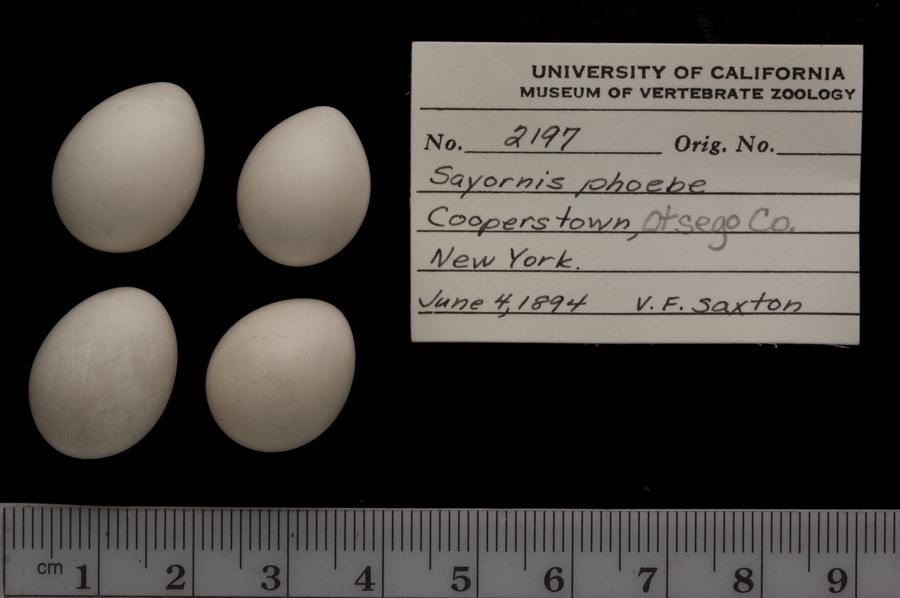 UNIVERSITY OF CALIFORNIA
MUSEUM OF VERTEBRATE ZOOLOGY
No. 2197 Orig. No.
Sayornis phoebe
Cooperstown, Otsego Co.
New York.
June 4, 1894 V. F. Saxton
cm 1 2 3 4 5 6 7 8 9